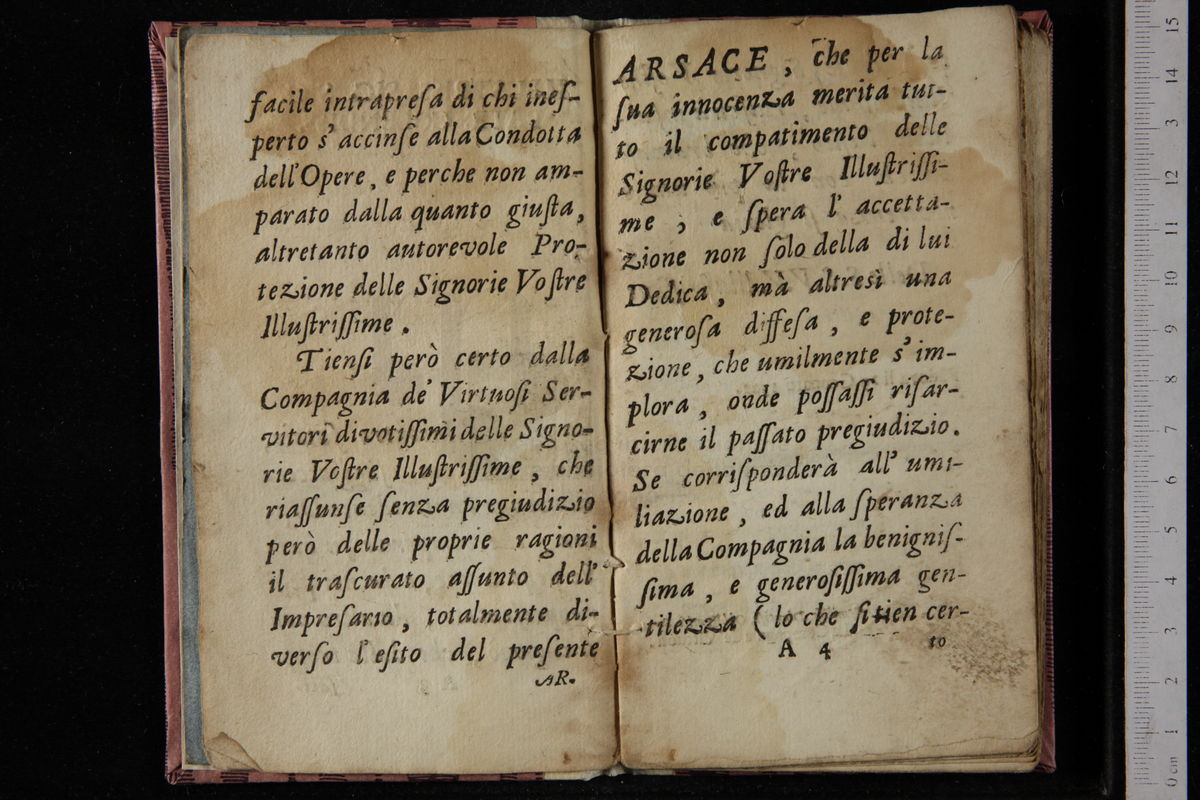 facile intrapreſa di chi ineſ-
perto s' accinſe alla Condotta
dell'Opere, e perche non am-
parato dalla quanto giuſta,
altretanto autorevole Pro-
tezione delle Signorie Voſtre
Illuſtriſſime.
Tienſi però certo dalla
Compagnia de' Virtuoſi Ser-
vitori divotiſſimi delle Signo-
rie Voſtre Illuſtriſſime, che
riaſſunſe ſenza pregiudizio
però delle proprie ragioni
il traſcurato aſſunto dell'
Impreſario, totalmente di-
verſo l'eſito del preſente
AR-
ARSACE, che per la
ſua innocenza merita tut-
to il compatimento delle
Signorie Voſtre Illuſtriſſi-
me ; e ſpera l' accetta-
zione non ſolo della di lui
Dedica, mà altresì una
generoſa diffeſa, e prote-
zione, che umilmente s'im-
plora, onde poſſaſſi riſar-
cirne il paſſato pregiudizio.
Se corriſponderà all' umi-
liazione, ed alla ſperanza
della Compagnia la benigniſ-
ſima, e generoſiſſima gen-
tilezza (lo che ſi tien cer-
A 4 to
15
14
3
12
11
10
9
8
7
6
5
4
3
2
1
0 cm